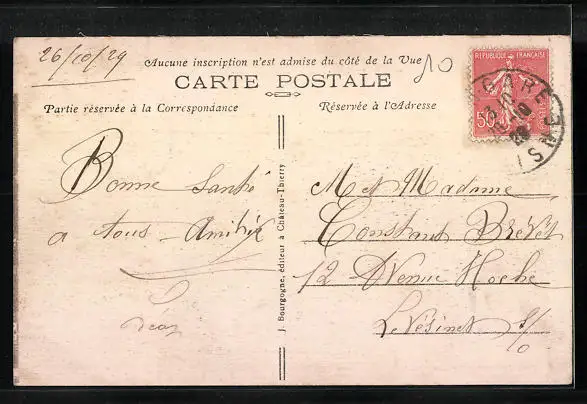 26/10/29
Aucune inscription n'est admise du côté de la Vue
10
CARTE POSTALE
Partie réservée à la Correspondance
Réservée à l'Adresse
REPUBLIQUE FRANÇAISE
50
GARE
10
AISNE
Bonne Santé
a tous Amitié
Léon
J. Bourgogne, éditeur à Château-Thierry
M et Madame
Constant Brévêt
12 Avenue Hoche
Le Vésinet S/O